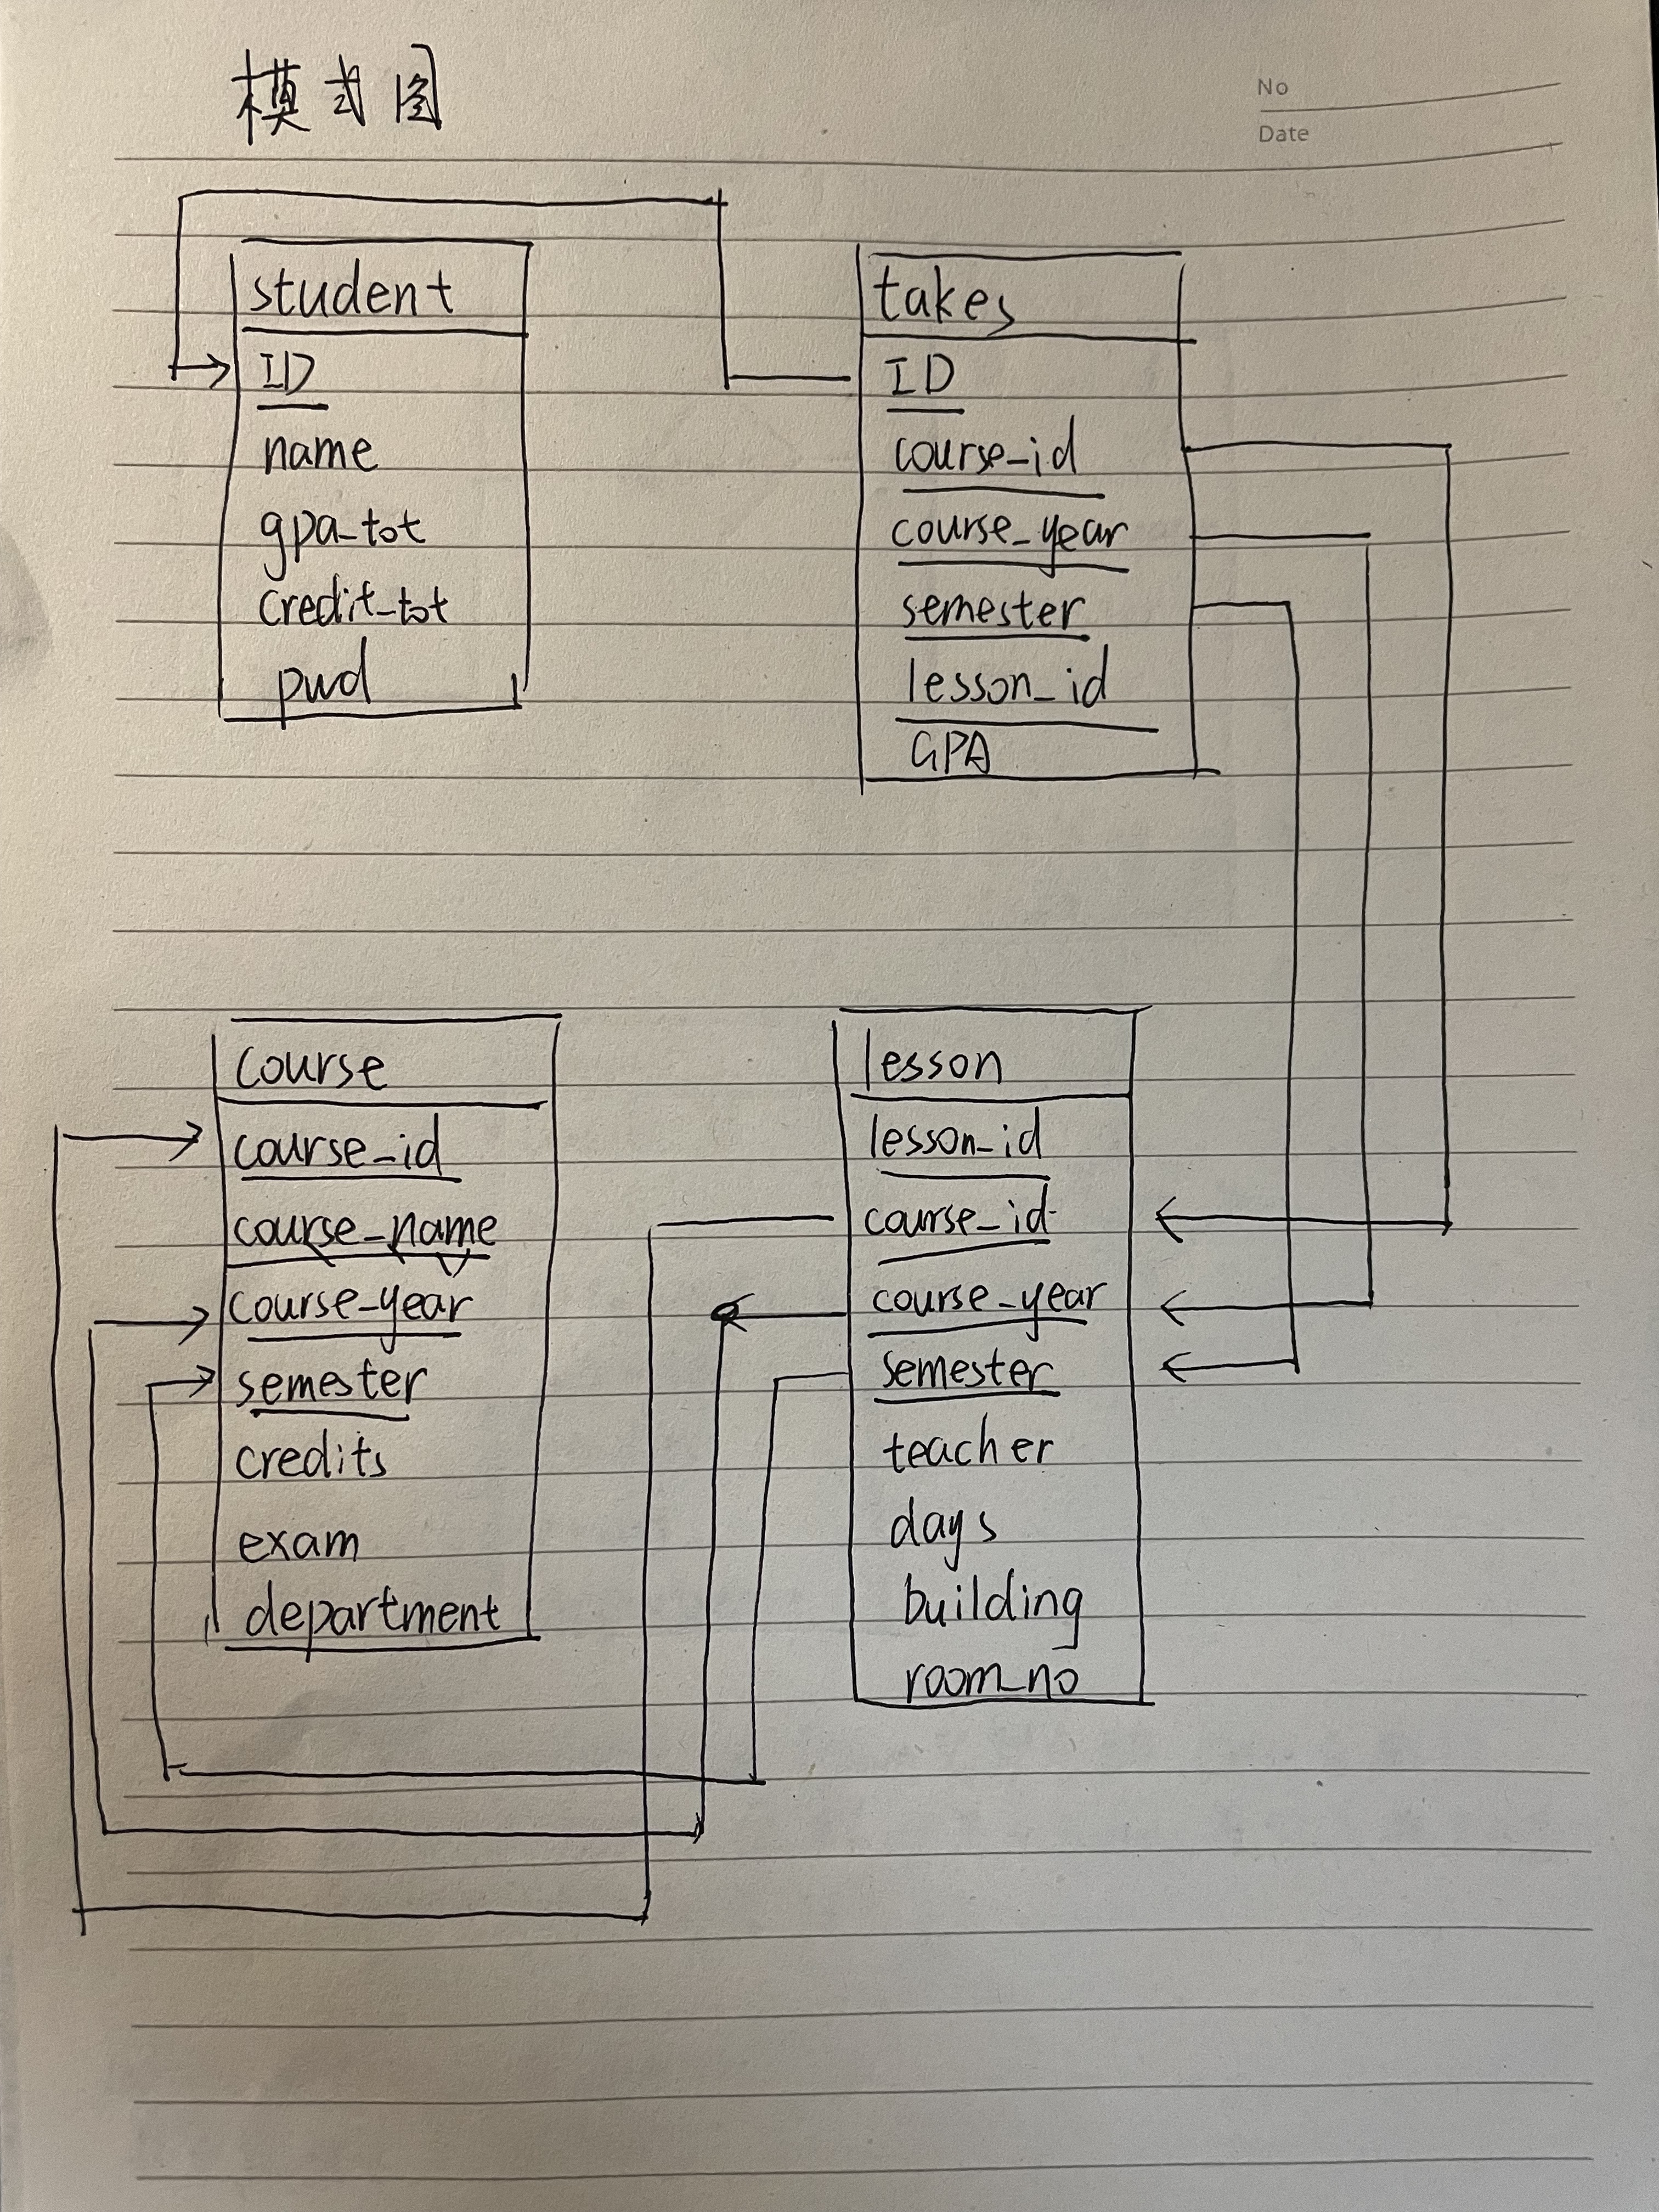 模式图
No
Date
student
ID
name
gpa_tot
credit_tot
pwd
takes
ID
course_id
course_year
semester
lesson_id
GPA
course
course_id
course_name
course_year
semester
credits
exam
department
lesson
lesson_id
course_id
course_year
semester
teacher
days
building
room_no